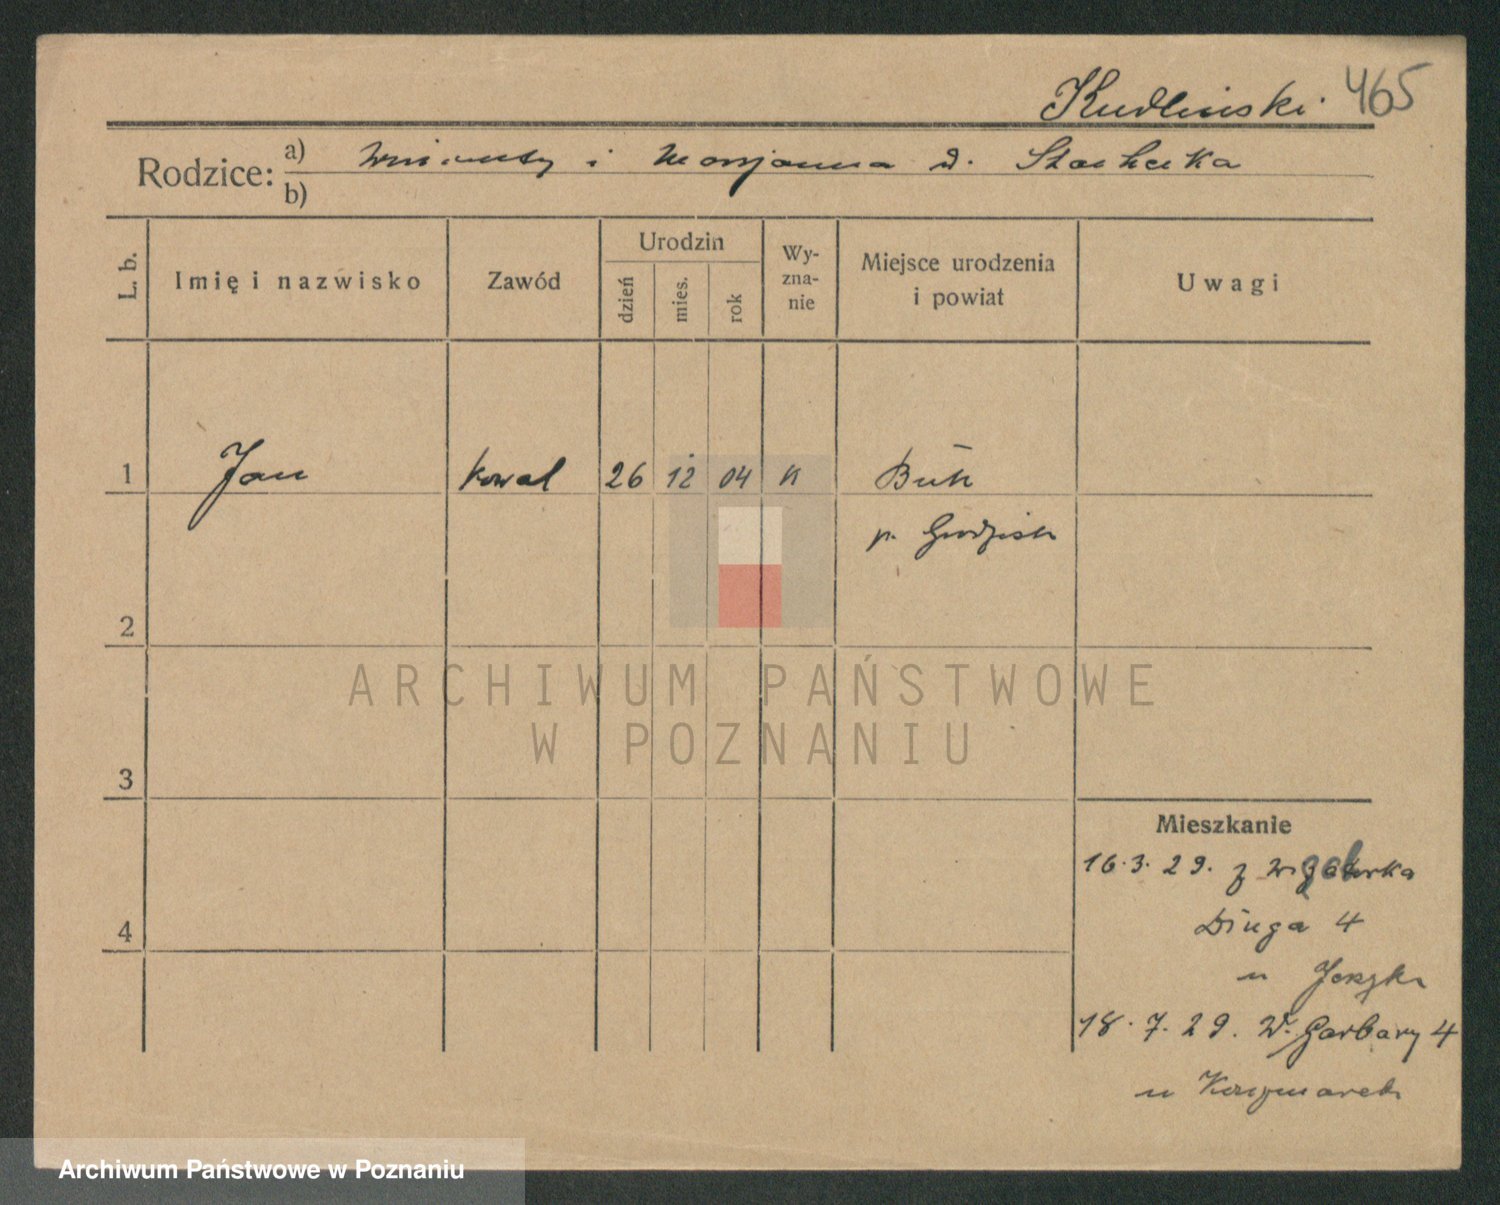 Kudliński 465
Rodzice: a) Wincenty i Marjanna d. Stachecka
b)
L. b.
Imię i nazwisko
Zawód
Urodzin
dzień
mies.
rok
Wy-
zna-
nie
Miejsce urodzenia
i powiat
Uwagi
1 Jan kowal 26 12 04 K Buk
p. Grodzisk
2
ARCHIWUM PAŃSTWOWE
W POZNANIU
3
Mieszkanie
16.3.29. z
Długa 4
4
u Jeszke
18.7.29. W. Garbary 4
u Kaczmarek
Archiwum Państwowe w Poznaniu